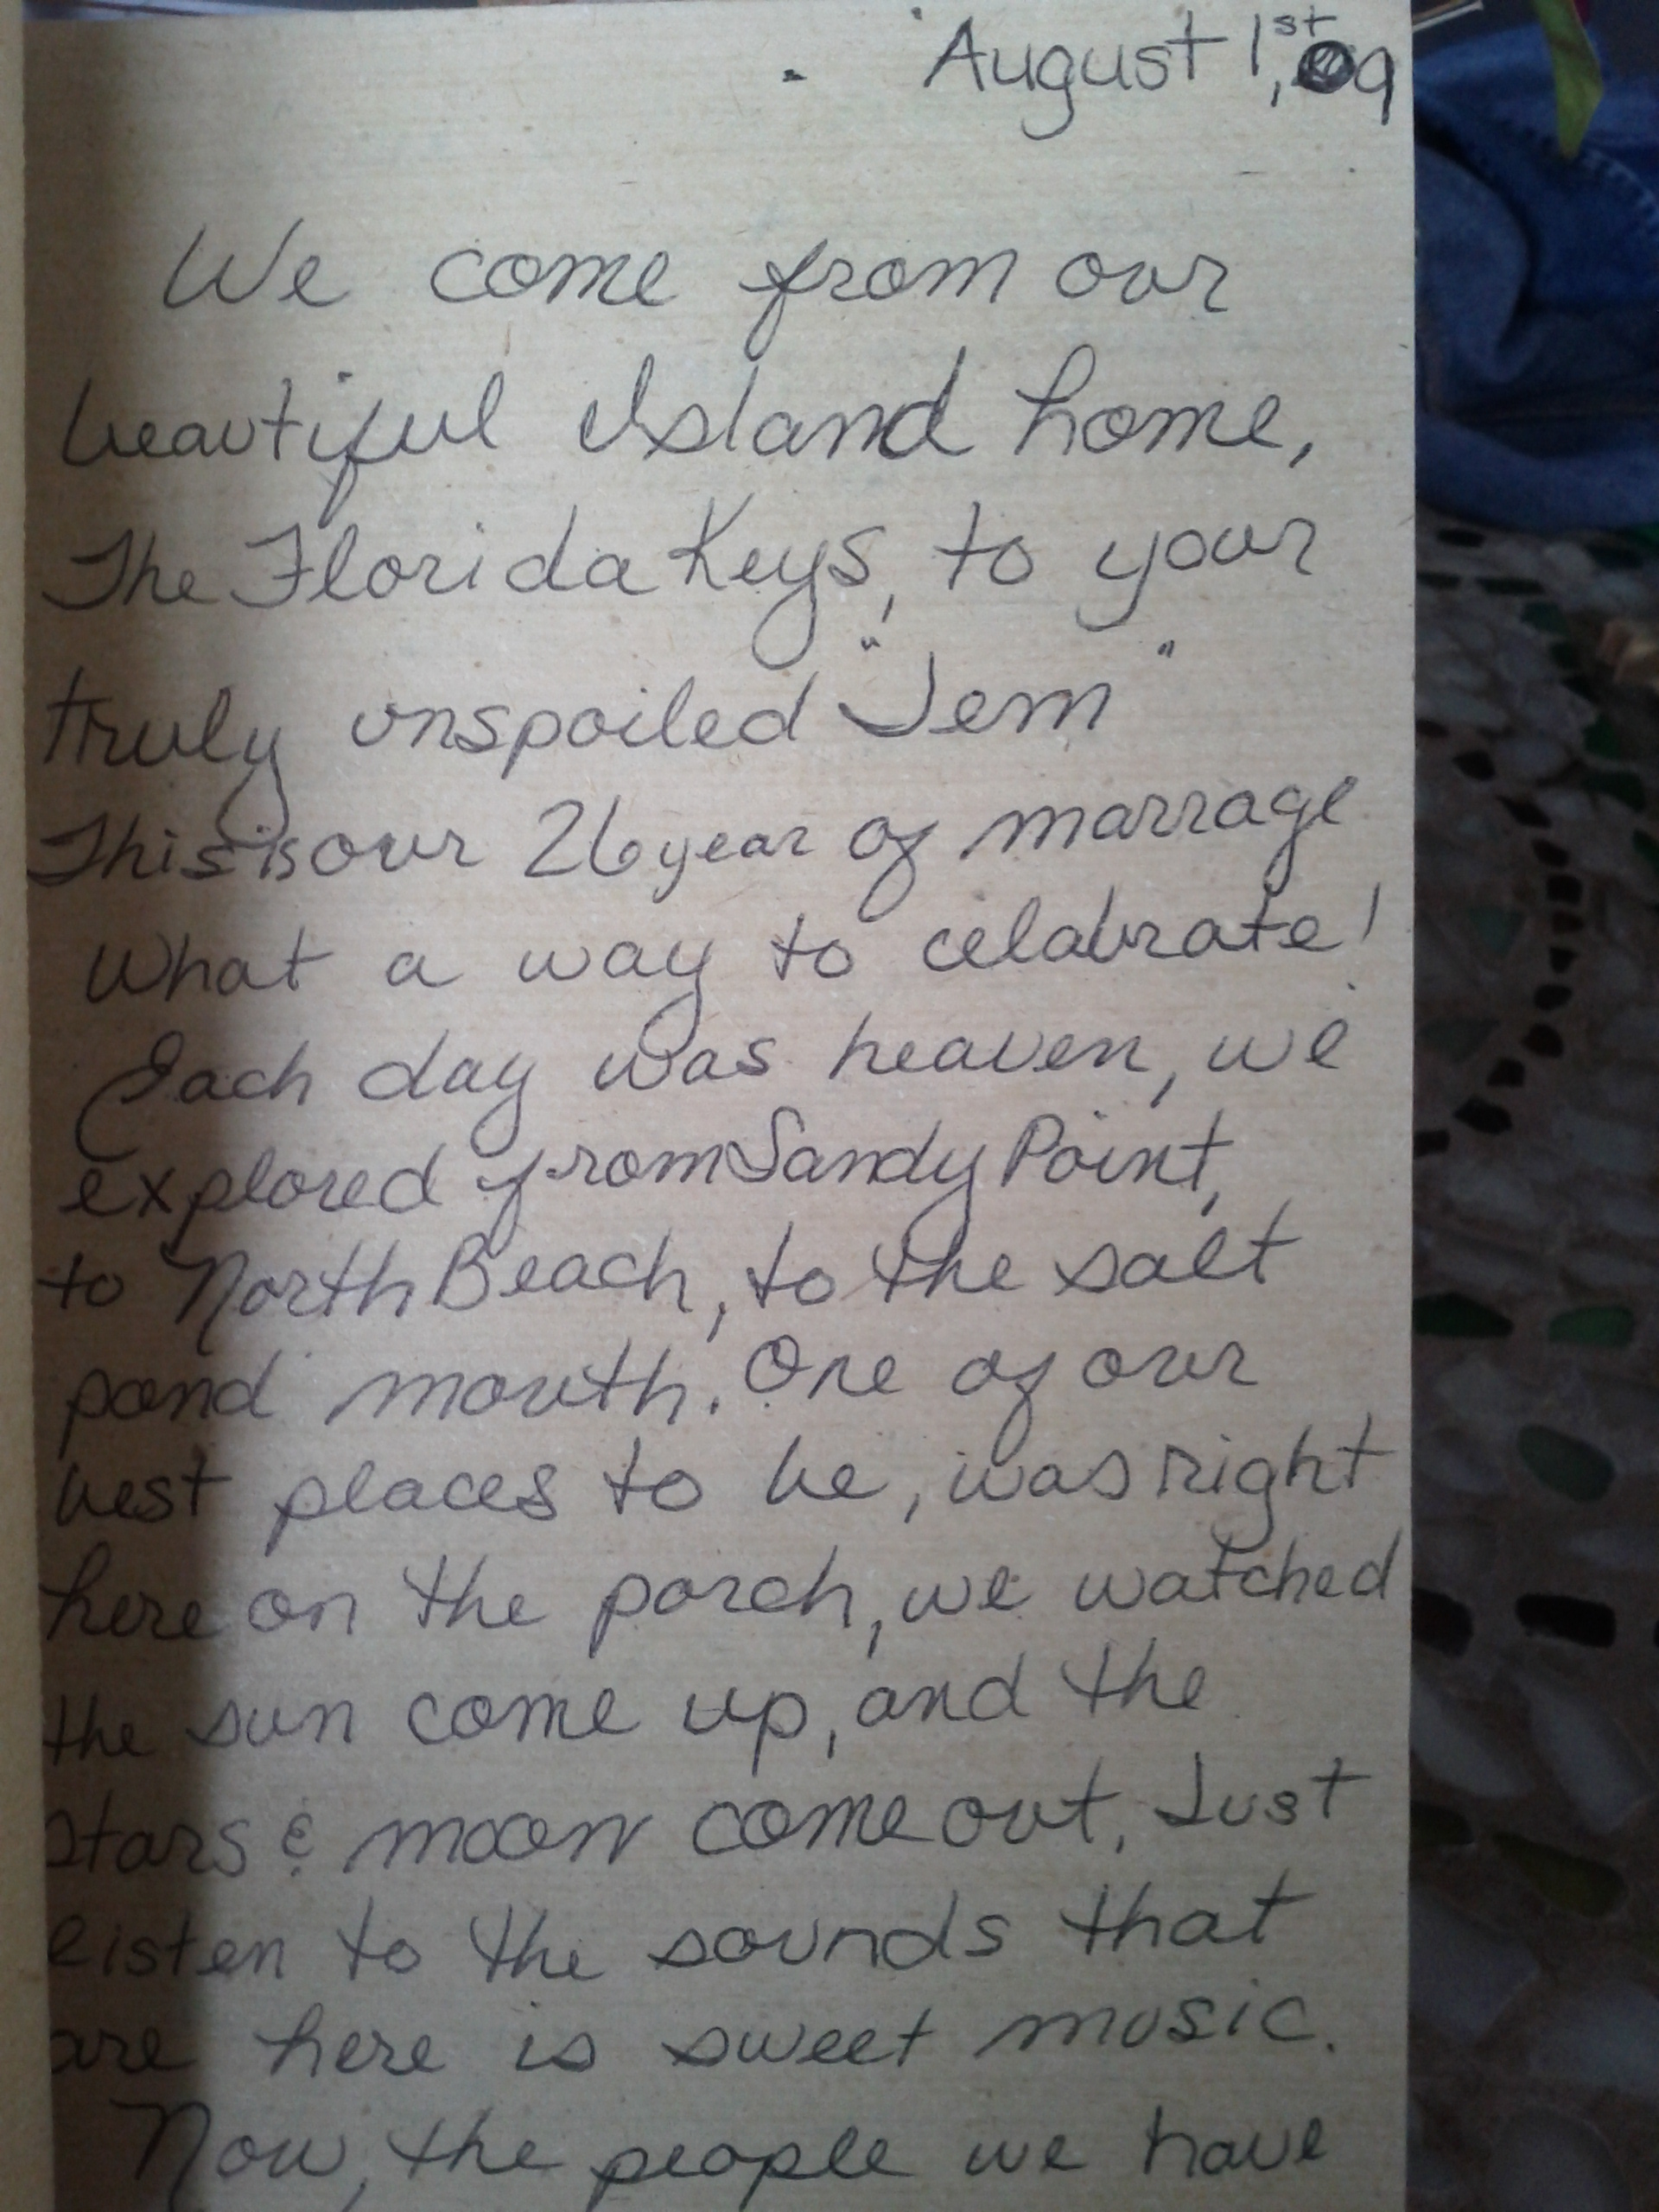 August 1st, 09
We come from our
beautiful Island home,
The Florida Keys, to your
truly unspoiled "Jem"
This is our 26 year of marrage
What a way to celabrate!
Each day was heaven, we
explored from Sandy Point,
to North Beach, to the salt
pond mouth. One of our
best places to be, was right
here on the porch, we watched
the sun come up, and the
stars & moon come out. Just
listen to the sounds that
are here is sweet music.
Now, the people we have